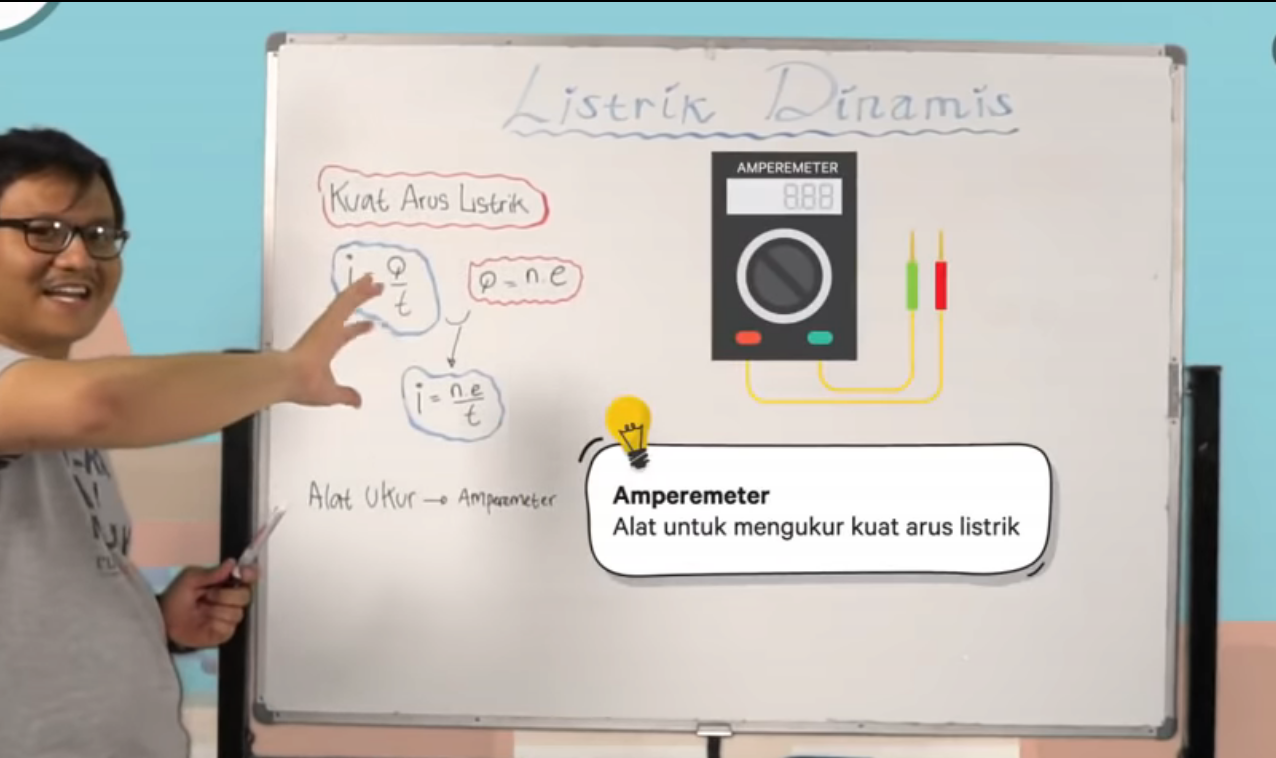 Listrik Dinamis
Kuat Arus Listrik
i = Q/t
Q = n.e
i = n.e/t
Alat Ukur → Amperemeter
AMPEREMETER
8.88
Amperemeter
Alat untuk mengukur kuat arus listrik